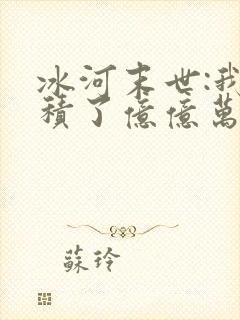 冰河末世:我
積了億億萬
蘇玲